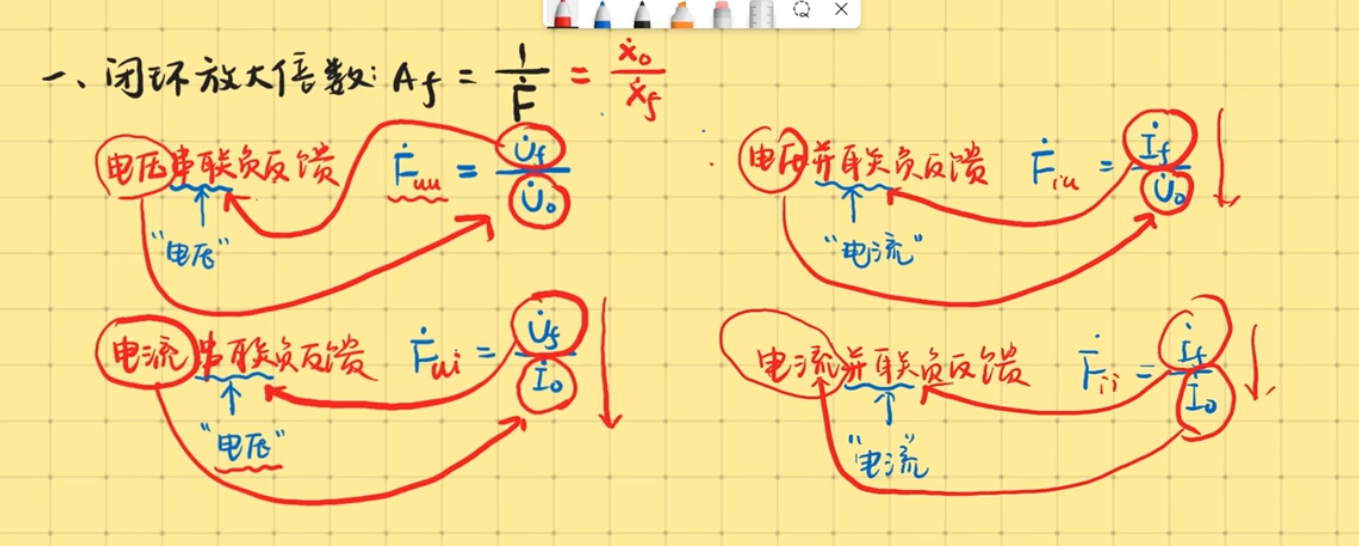 一、闭环放大倍数: Af = 1/Ḟ = Ẋo/Ẋf
电压串联负反馈 Ḟuu = U̇f/U̇o
"电压"
电压并联负反馈 Ḟiu = İf/U̇o
"电流"
电流串联负反馈 Ḟui = U̇f/İo
"电压"
电流并联负反馈 Ḟii = İf/İo
"电流"